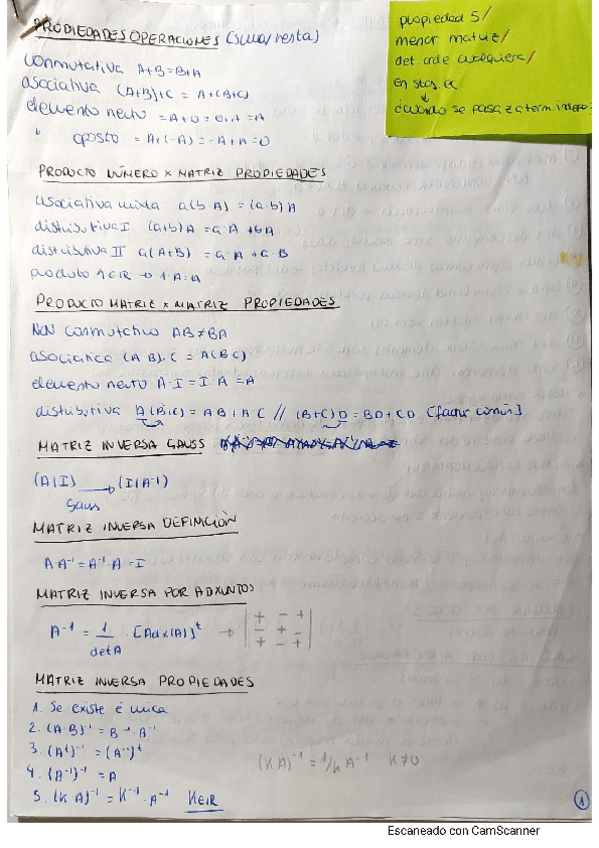 PROPIEDADES OPERACIONES (suma/resta)
conmutativa A+B=B+A
asociativa (A+B)+C = A+(B+C)
elemento neutro = A+0 = 0+A = A
" oposto = A+(-A) = -A+A = 0
propiedad 5/
menor matriz/
det. orde cualquiera/
En stas. ec
↓
cuando se pasa z a term. indep?
PRODUCTO NÚMERO x MATRIZ PROPIEDADES
asociativa mixta a(b·A) = (a·b)A
distributiva I (a+b)A = a·A + bA
distributiva II a(A+B) = a·A + a·B
produto 1 ∈ IR → 1·A = a
PRODUCTO MATRIZ x MATRIZ PROPIEDADES
NON conmutativo AB≠BA
asociativa (A·B)·C = A(BC)
elemento neutro A·I = I·A = A
distributiva A(B+C) = AB + A·C // (B+C)D = BD + CD [factor común]
MATRIZ INVERSA GAUSS
(A|I) → (I|A⁻¹)
Gauss
MATRIZ INVERSA DEFINICIÓN
A·A⁻¹ = A⁻¹·A = I
MATRIZ INVERSA POR ADXUNTOS
A⁻¹ = 1/detA · [Adx(A)]ᵗ → | + - + |
| - + - |
| + - + |
MATRIZ INVERSA PROPIEDADES
1. Se existe é única
2. (A·B)⁻¹ = B⁻¹·A⁻¹
3. (Aᵗ)⁻¹ = (A⁻¹)ᵗ
4. (A⁻¹)⁻¹ = A
(KA)⁻¹ = 1/K A⁻¹ K≠0
5. (K·A)⁻¹ = K⁻¹·A⁻¹ K∈IR
1
Escaneado con CamScanner